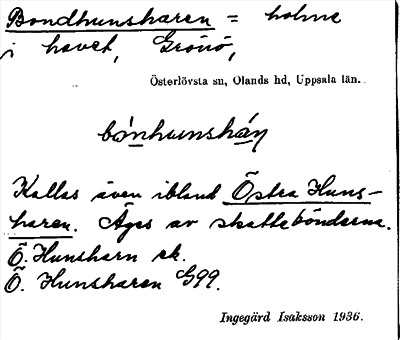 Bondhunsharen = holme
i havet, Gräsö,
Österlövsta sn, Olands hd, Uppsala län.
bónhunshán
Kallas även ibland Östra Huns-
haren. Äges av skattebönderna.
Ö. Hunsharn ek.
Ö. Hunsharen G99.
Ingegärd Isaksson 1936.